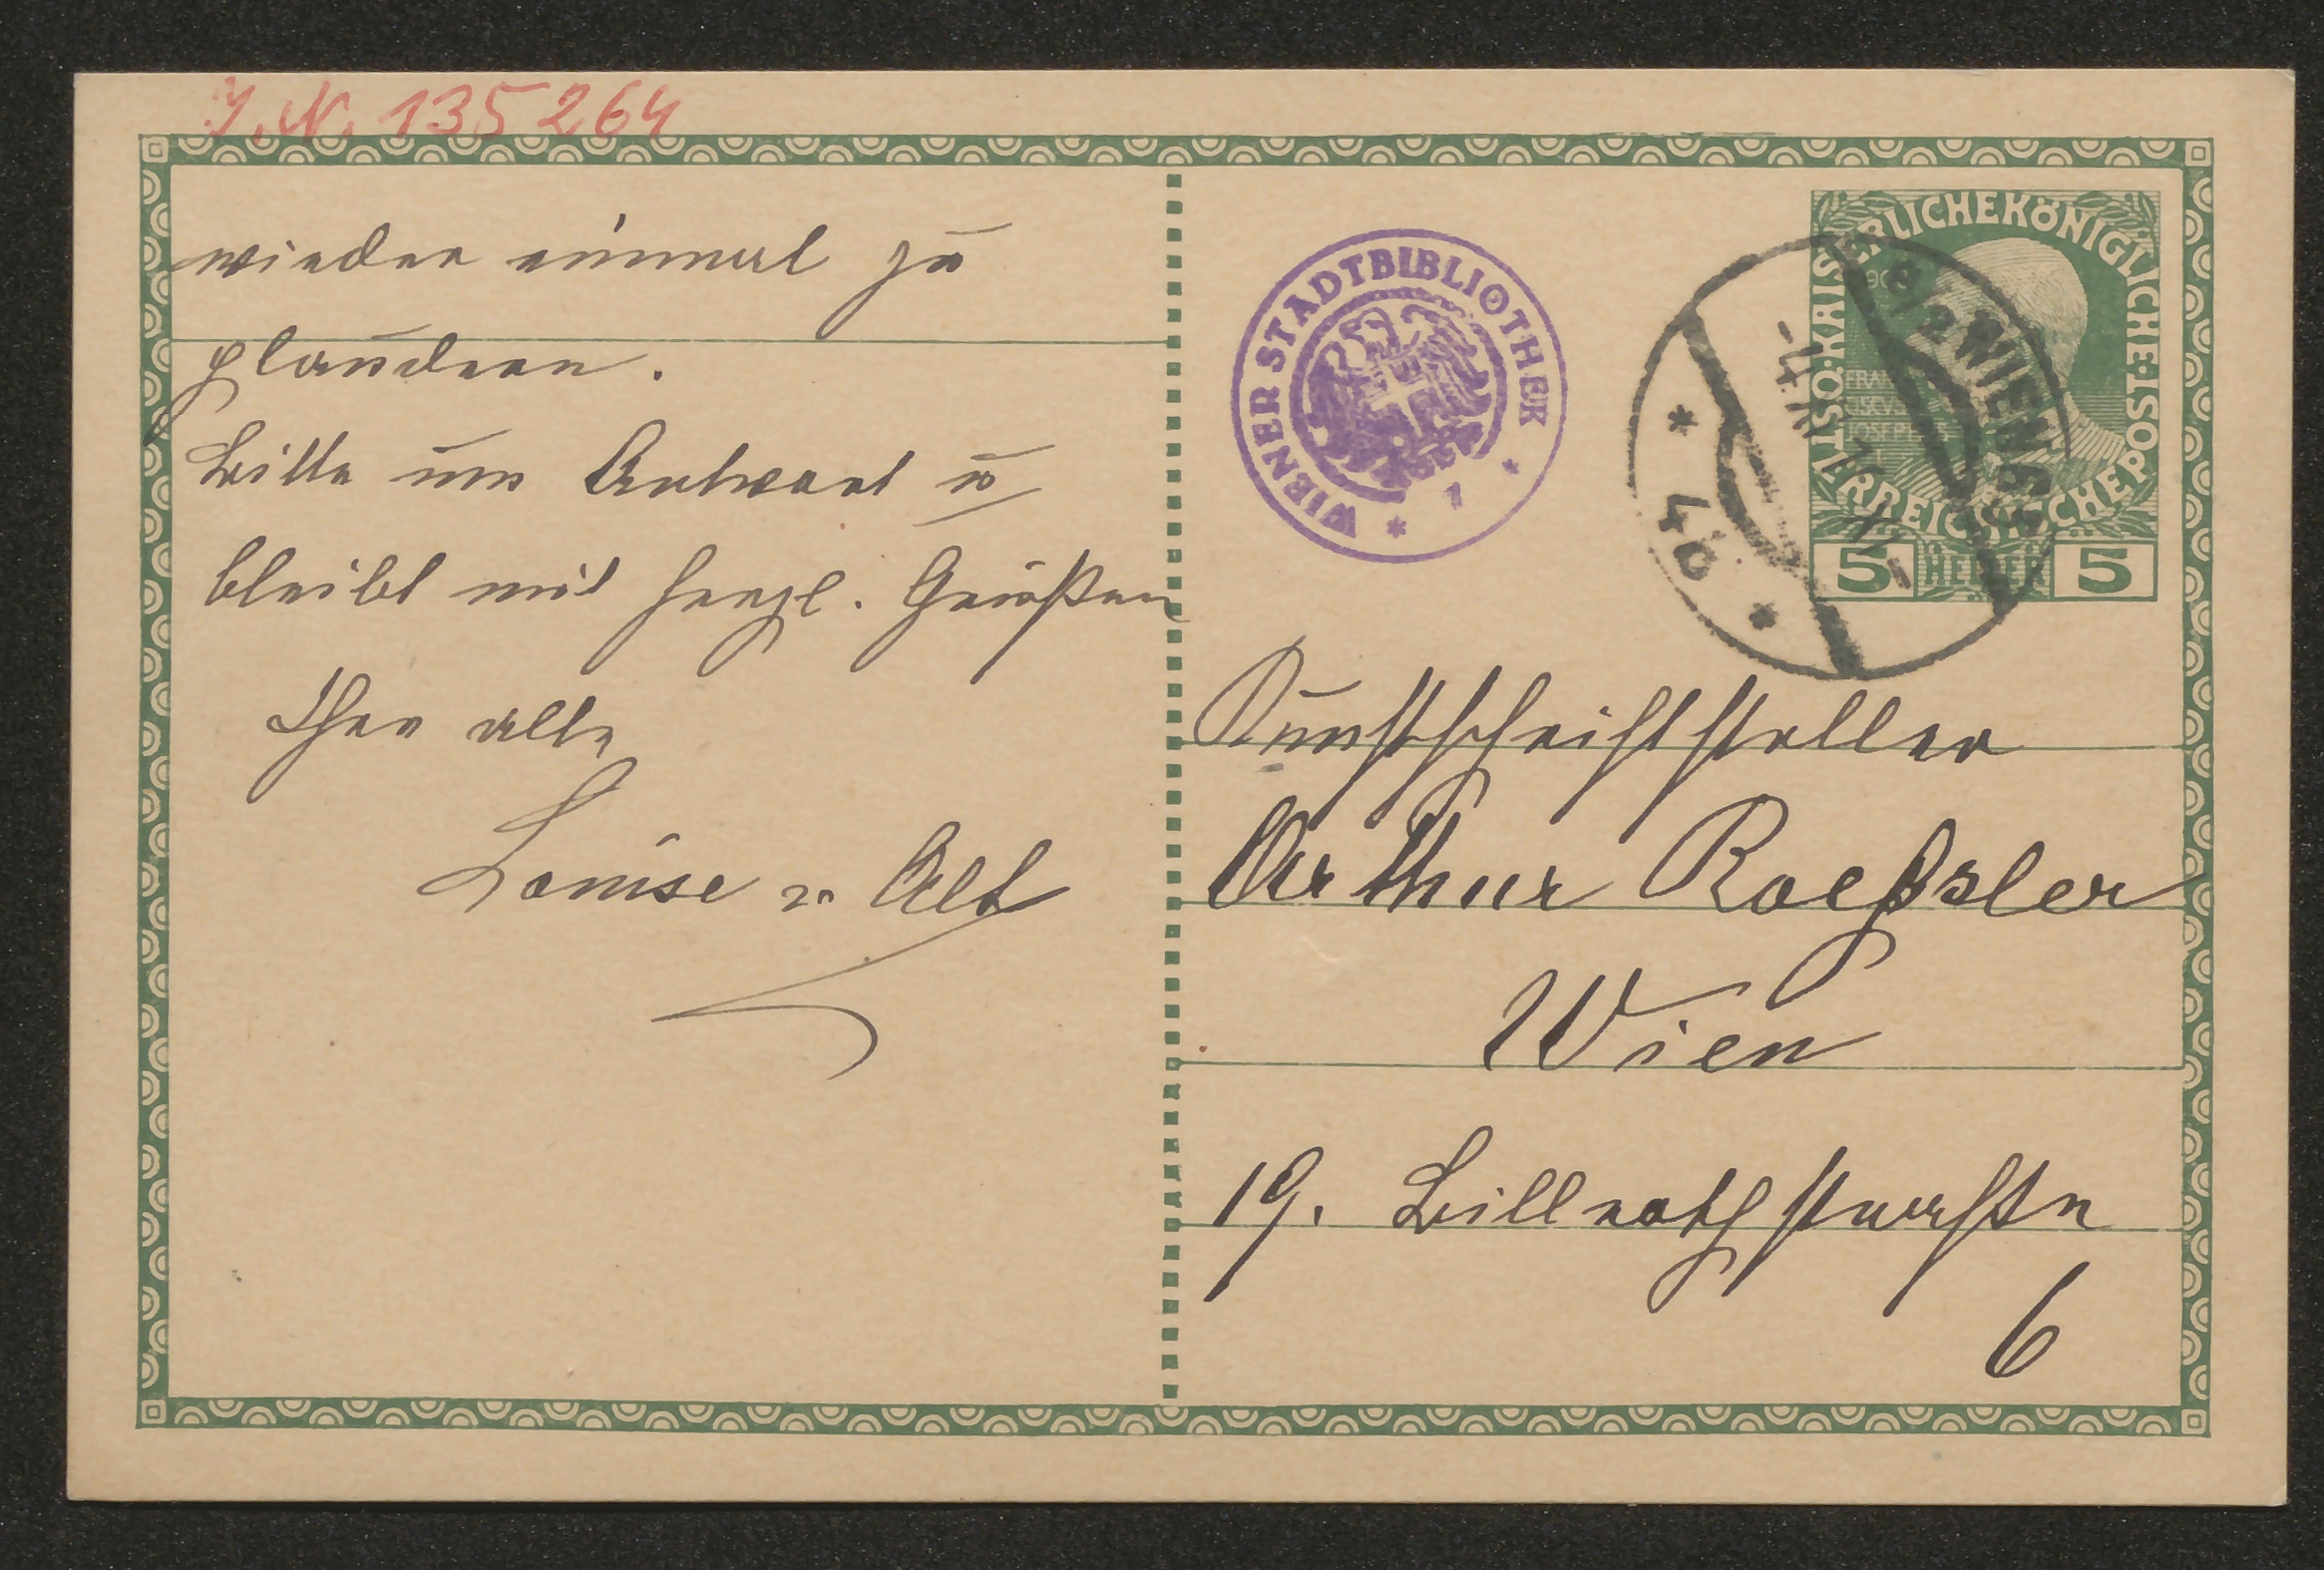 I.N. 135264
wieder einmal zu
plaudern.
Bitte um Antwort u
bleibt mit herzl. Grüßen
Ihre alte
Louise v. Alt
WIENER STADTBIBLIOTHEK
* 1 *
KAISERLICHE KÖNIGLICHE ÖSTERREICHISCHE POST
5 HELLER 5
8/2 WIEN
* 4b *
Kunstschriftsteller
Arthur Roeßsler
Wien
19. Billrothstraße
6